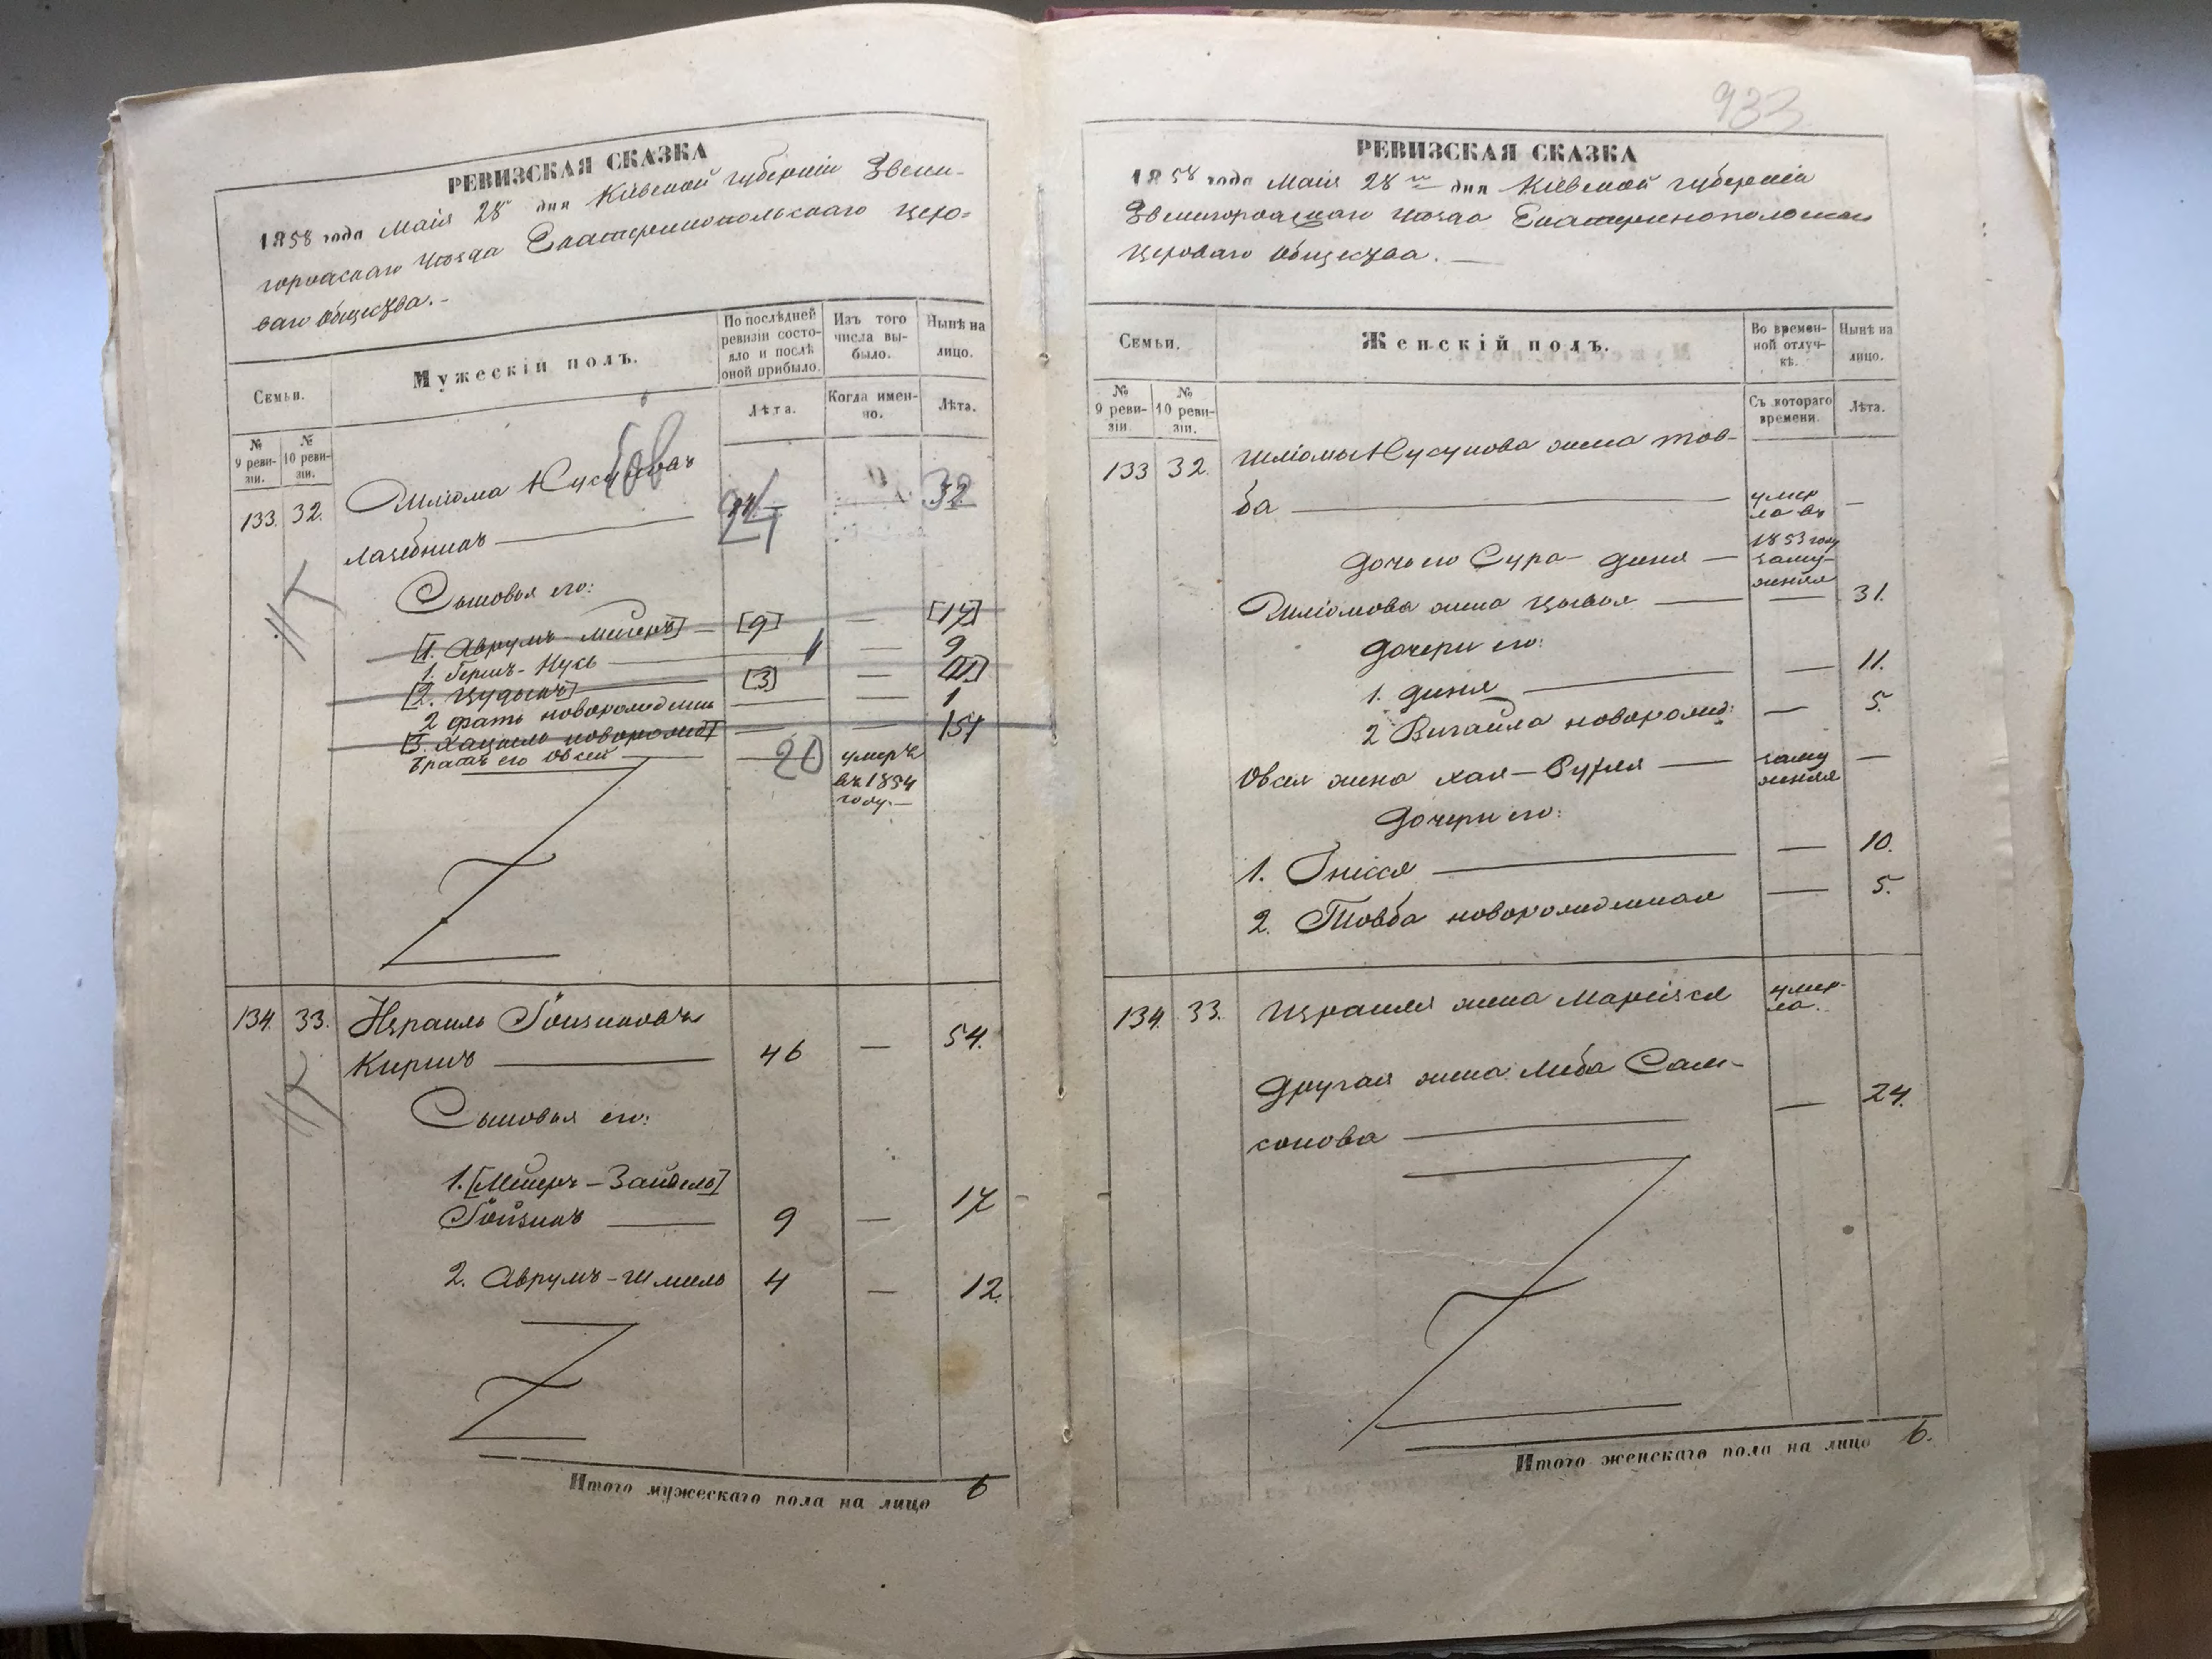 РЕВИЗСКАЯ СКАЗКА
1858 года Маія 28 дня Кіевской губерніи Звени-
городскаго уѣзда Екатеринопольскаго церо-
ваго общества.-
Семьи.
Мужескій полъ.
По послѣдней ревизіи состояло и послѣ оной прибыло.
Изъ того числа выбыло.
Нынѣ на лицо.
№ 9 ревизіи.
№ 10 ревизіи.
Лѣта.
Когда именно.
Лѣта.
133. 32. Шліома
32
Сыновья его:
[1. Аврумъ-Мееръ] — [9] — [17]
1. Гершъ-Нусъ — 1 — 9
[2. — [3] —
2 новорожденн — — 1
[3. новорожд] — —
Братъ его Овсей — 20 умеръ
въ 1854
году.—
134. 33. Израиль
Киришъ — 46 — 54.
Сыновья его:
1. [Мееръ-Зайдель]
— 9 — 17
2. Аврумъ-Шмиль 4 — 12.
Итого мужескаго пола на лицо 6
933
РЕВИЗСКАЯ СКАЗКА
1858 года Маія 28го дня Кіевской губерніи
Звенигородскаго уѣзда Екатеринопольскаго
цероваго общества.—
Семьи.
Женскій полъ.
Во временной отлучкѣ.
Нынѣ на лицо.
№ 9 ревизіи.
№ 10 ревизіи.
Съ котораго времени.
Лѣта.
133 32. Шліомы Нусунова жена Тов-
ба — умер
ла въ —
1853 году
Дочь его Сура-Диня — заму-
жняя
Шліомова жена Цывья — — 31.
Дочери его:
1. Диня — — 11.
2 новорожд: — 5.
Овсея жена Хая-Рухля — заму
жняя —
Дочери его:
1. Гнися — — 10.
2. Товба новорожденная — 5.
134. 33. Израиля жена умер-
ла.
Другая жена Либа Сам-
сонова — — 24.
Итого женскаго пола на лицо 6.